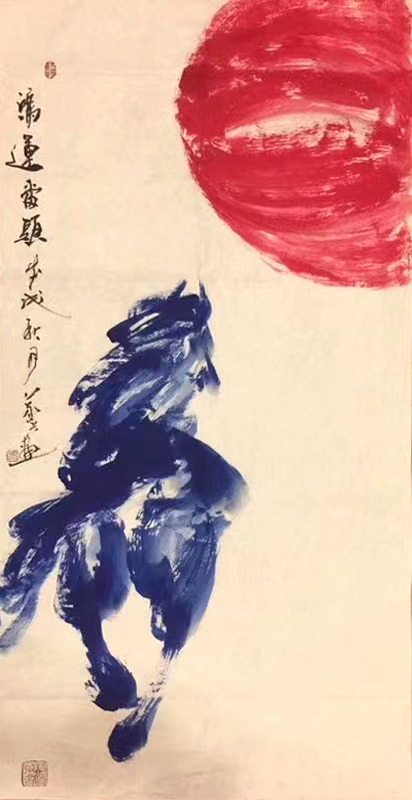 鴻運當頭 戊戌秋月